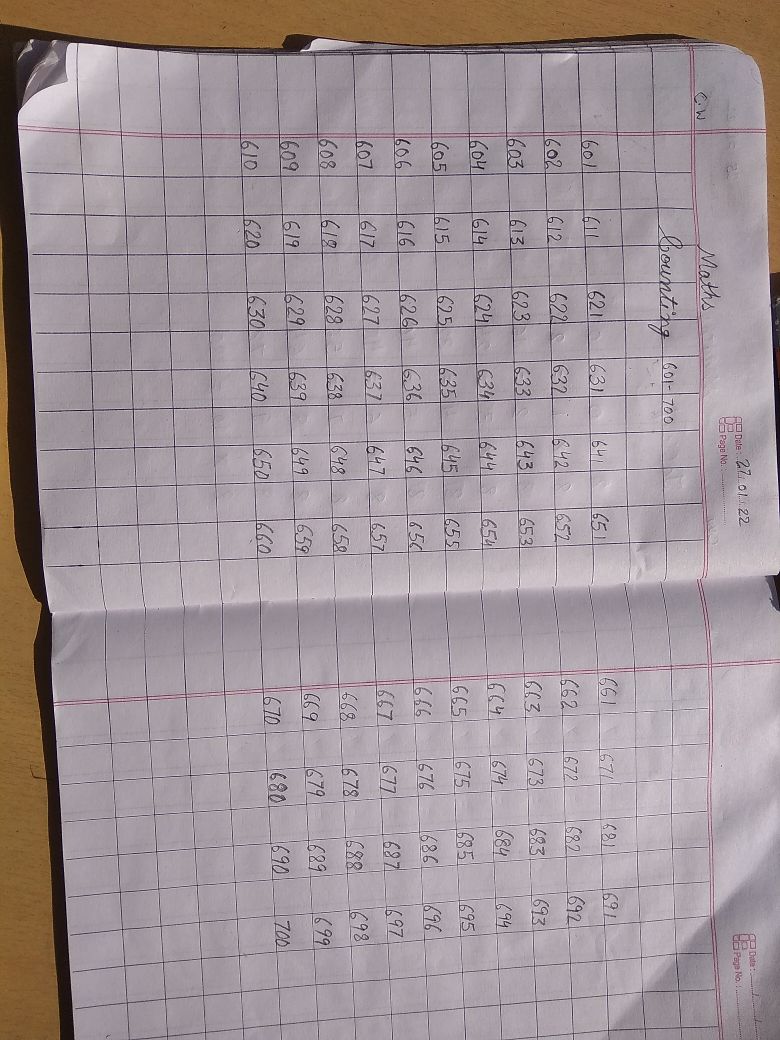 Date: 27.01.22
Page No.:
C.W Maths
Counting 601-700
601 611 621 631 641 651
602 612 622 632 642 652
603 613 623 633 643 653
604 614 624 634 644 654
605 615 625 635 645 655
606 616 626 636 646 656
607 617 627 637 647 657
608 618 628 638 648 658
609 619 629 639 649 659
610 620 630 640 650 660
Date:
Page No.:
661 671 681 691
662 672 682 692
663 673 683 693
664 674 684 694
665 675 685 695
666 676 686 696
667 677 687 697
668 678 688 698
669 679 689 699
670 680 690 700